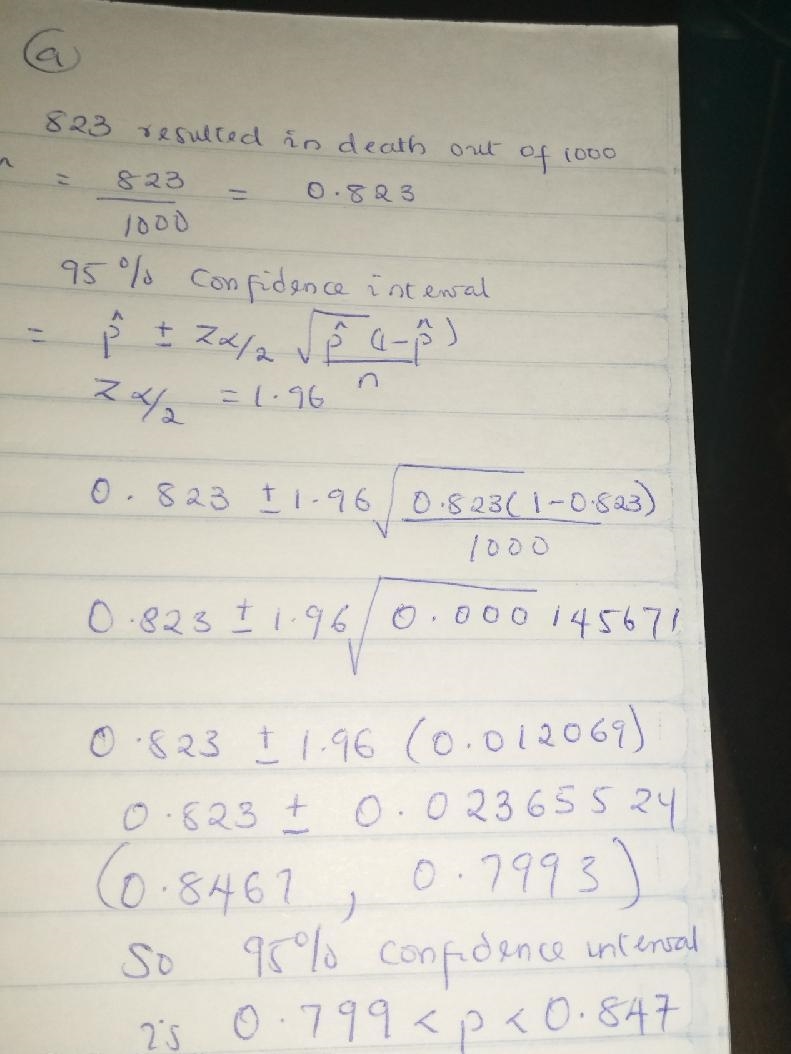 (a)
823 resulted in death out of 1000
= 823/1000 = 0.823
95% Confidence interval
= p̂ ± Zα/2 √p̂(1-p̂)/n
Zα/2 = 1.96
0.823 ± 1.96 √0.823(1-0.823)/1000
0.823 ± 1.96 √0.000145671
0.823 ± 1.96 (0.012069)
0.823 ± 0.02365524
(0.8467, 0.7993)
So 95% confidence interval
is 0.799 < p < 0.847